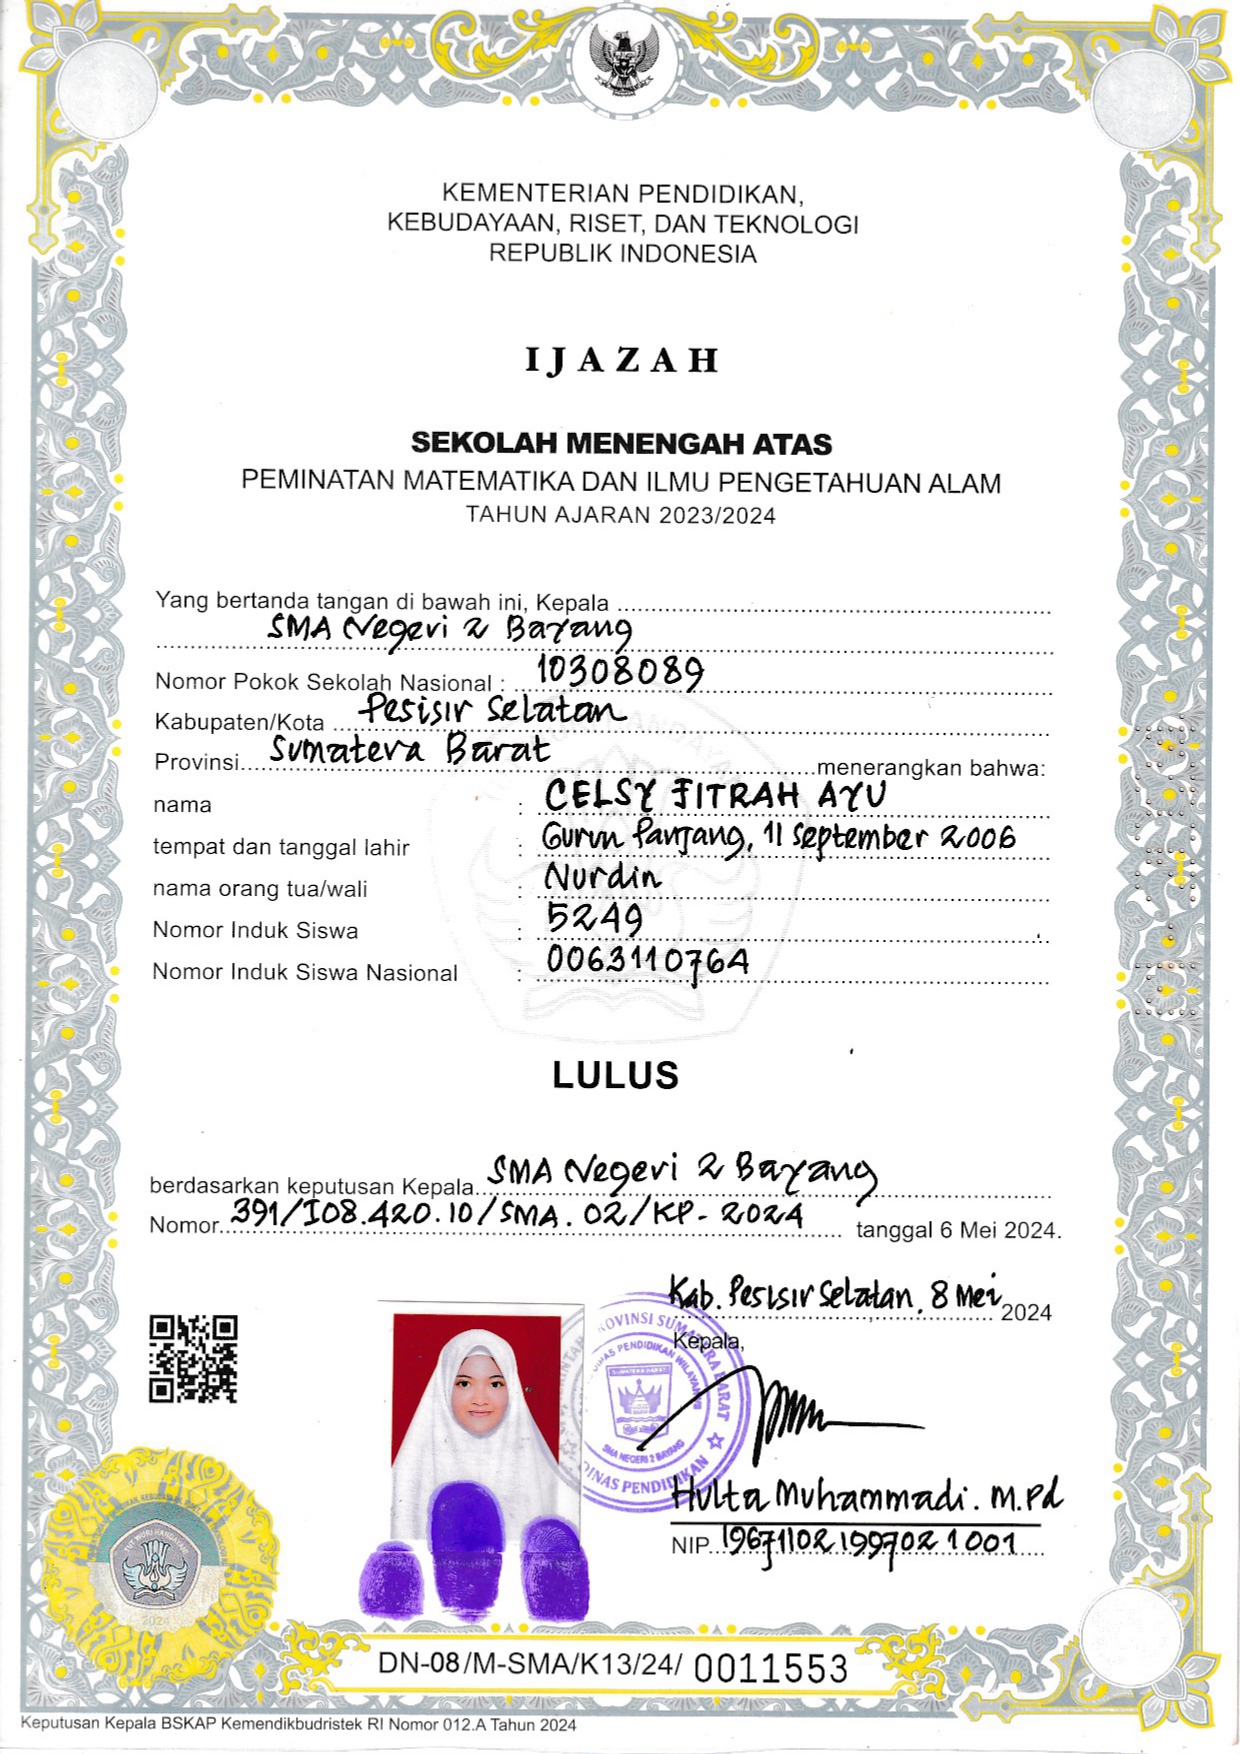 KEMENTERIAN PENDIDIKAN,
KEBUDAYAAN, RISET, DAN TEKNOLOGI
REPUBLIK INDONESIA
IJAZAH
SEKOLAH MENENGAH ATAS
PEMINATAN MATEMATIKA DAN ILMU PENGETAHUAN ALAM
TAHUN AJARAN 2023/2024
Yang bertanda tangan di bawah ini, Kepala
SMA Negeri 2 Bayang
Nomor Pokok Sekolah Nasional : 10308089
Kabupaten/Kota Pesisir Selatan
Provinsi Sumatera Barat menerangkan bahwa:
nama : CELSY FITRAH AYU
tempat dan tanggal lahir : Gurun Panjang, 11 September 2006
nama orang tua/wali : Nurdin
Nomor Induk Siswa : 5249
Nomor Induk Siswa Nasional : 0063110764
LULUS
berdasarkan keputusan Kepala SMA Negeri 2 Bayang
Nomor 391/I08.420.10/SMA.02/KP-2024 tanggal 6 Mei 2024.
Kab. Pesisir Selatan, 8 Mei 2024
Kepala,
PROVINSI SUMATERA BARAT
DINAS PENDIDIKAN WILAYAH
SUMATERA BARAT
SMA NEGERI 2 BAYANG
DINAS PENDIDIKAN
Hulta Muhammadi. M.Pd
NIP. 196711021997021001
TUT WURI HANDAYANI
2024
DN-08/M-SMA/K13/24/ 0011553
Keputusan Kepala BSKAP Kemendikbudristek RI Nomor 012.A Tahun 2024